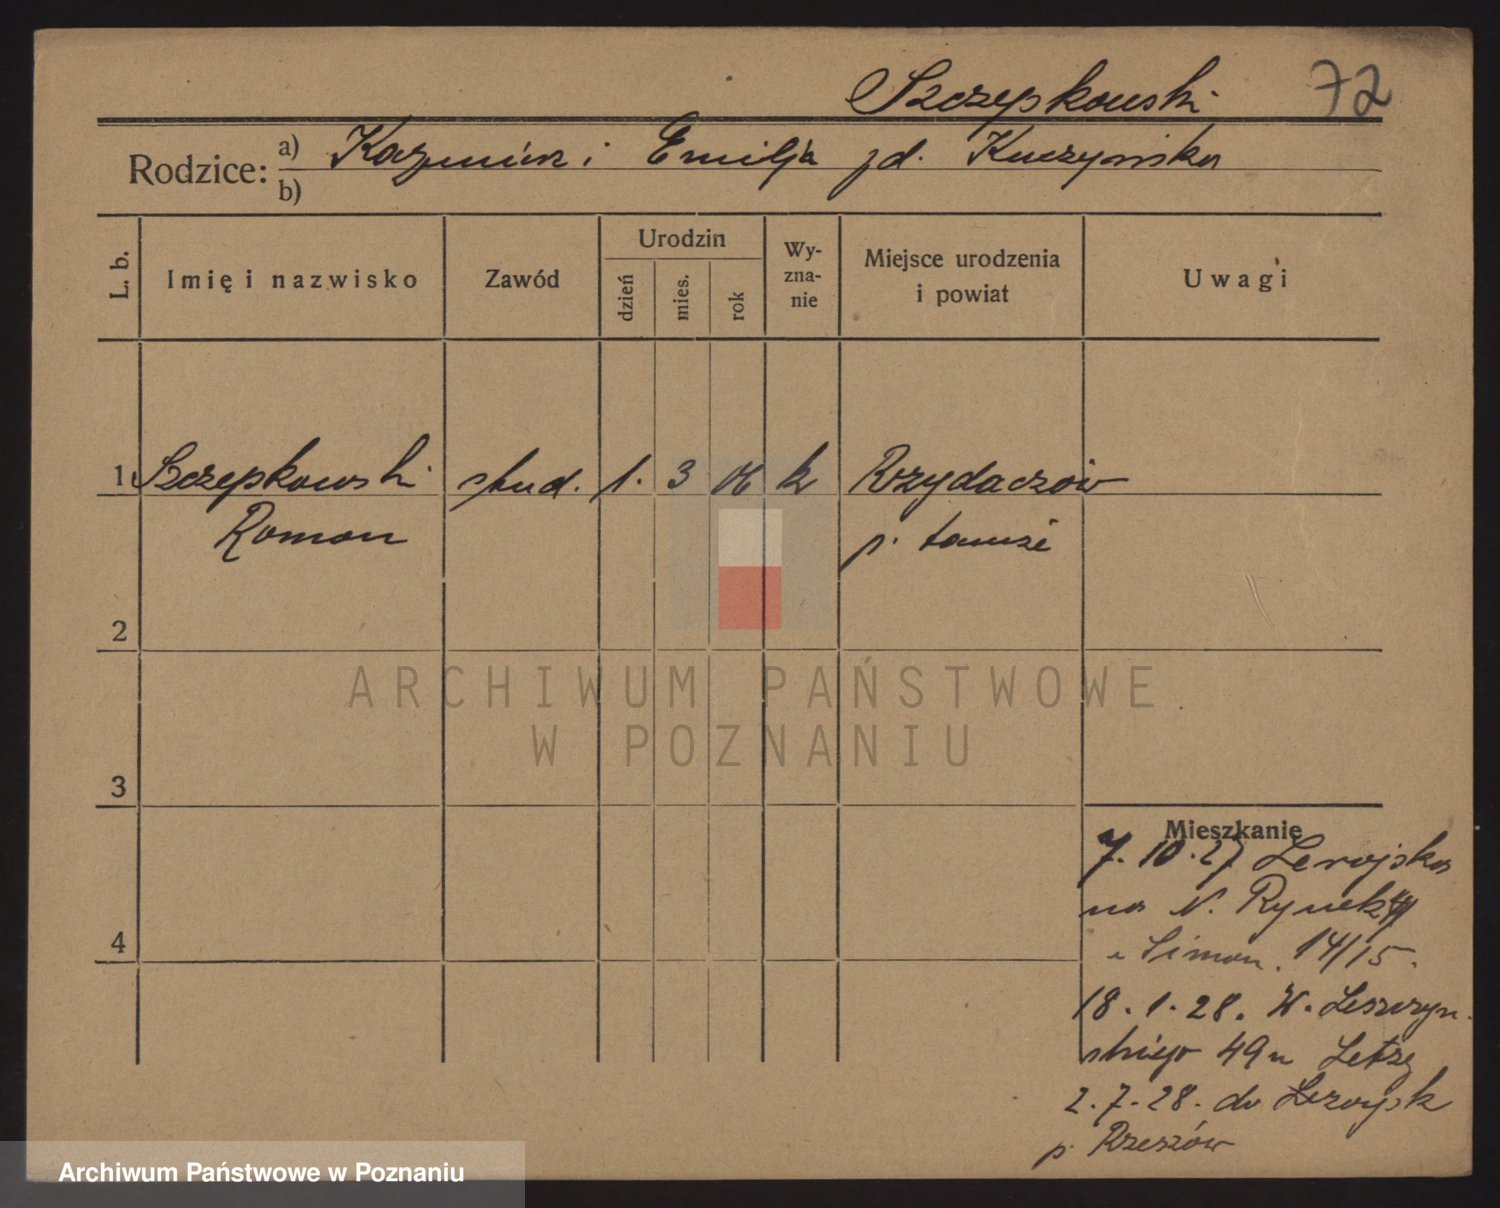 Szczepkowski 72
Rodzice: a) Kazimierz i Emilja zd. Kuczyńska
b)
L. b. Imię i nazwisko Zawód Urodzin dzień mies. rok Wy-zna-nie Miejsce urodzenia i powiat Uwagi
1 Szczepkowski stud. 1. 3 06 k Rzydaczów
Roman p. tamże
2
ARCHIWUM PAŃSTWOWE
W POZNANIU
3
Mieszkanie
7. 10. 27
na N. Rynek
u Simon. 14/15.
4
18. 1. 28. W. Leszczyń-
skiego 49 u
2. 7. 28. do
p. Rzeszów
Archiwum Państwowe w Poznaniu